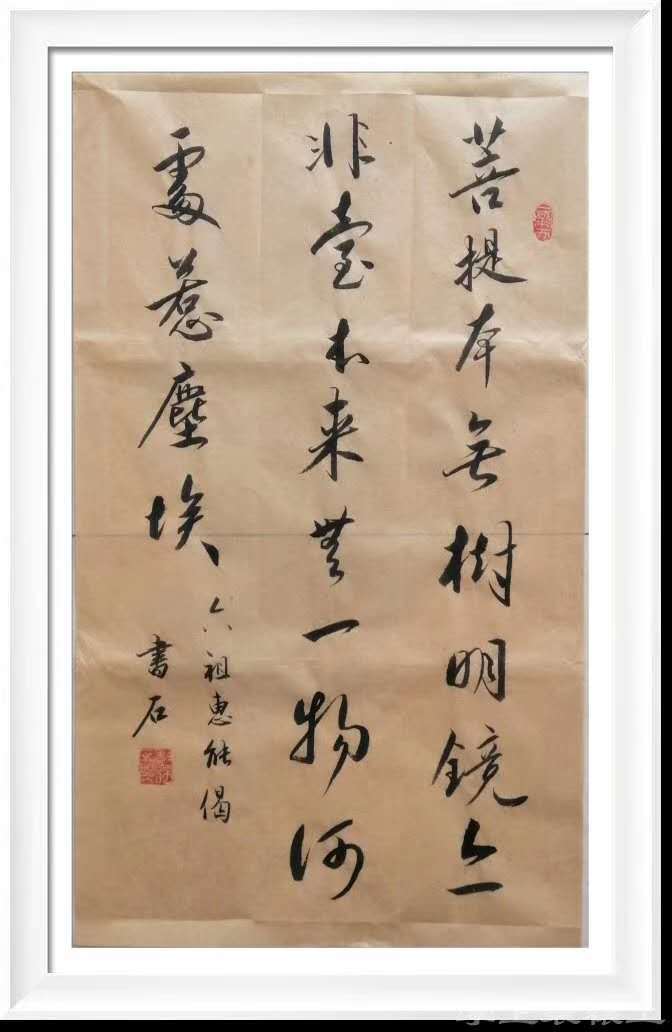 菩提本無樹明鏡亦
非臺本来無一物何
處惹塵埃
六祖惠能偈
書石